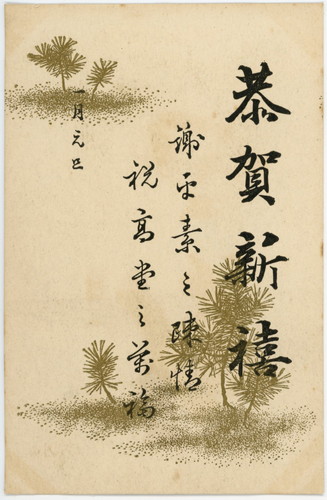 恭賀新禧
謝平素之疎情
祝高堂之萬福
一月元旦